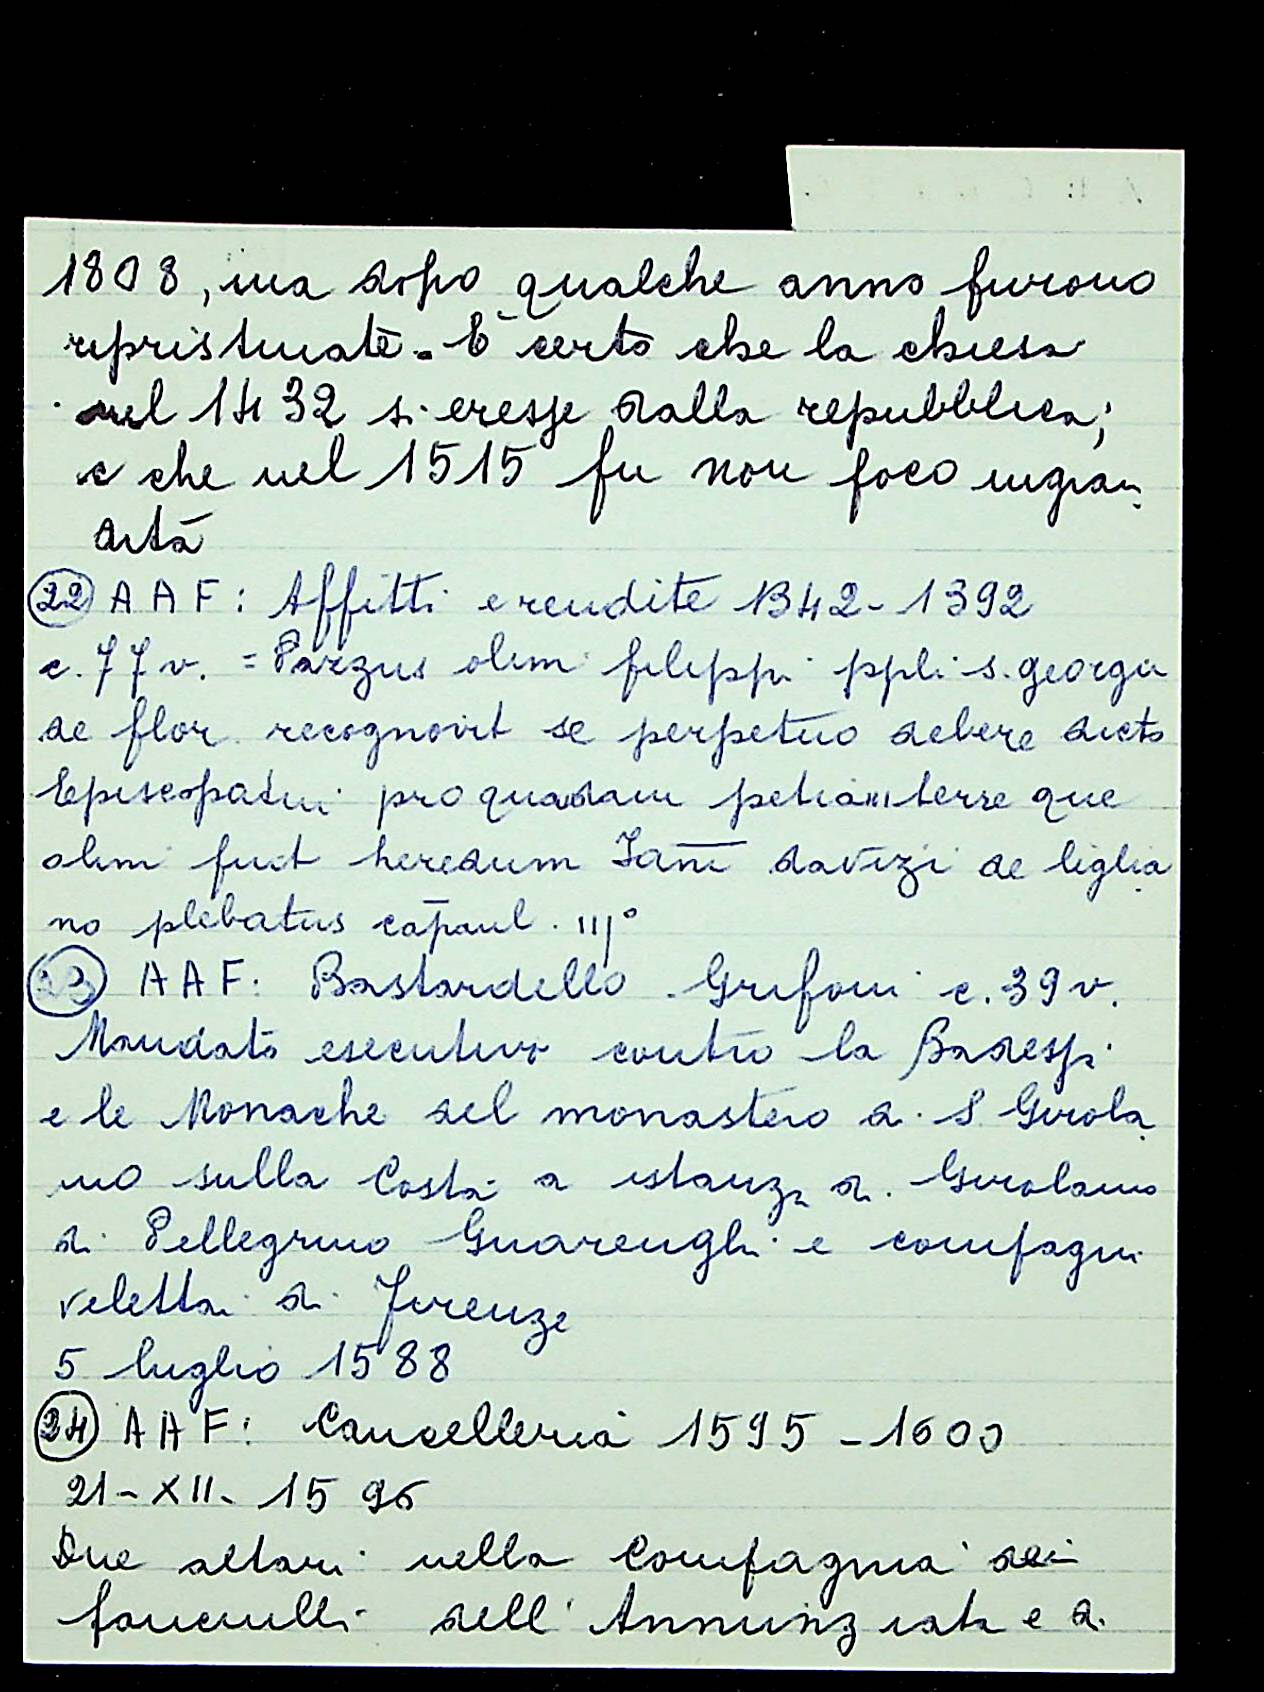 1808, ma dopo qualche anno furono
ripristinate. È certo che la chiesa
nel 1432 si eresse dalla repubblica;
e che nel 1515 fu non poco ingran
dita
22 A A F: Affitti e rendite 1342-1392
c. 77 v. = Parzus olim filippi ppli s. georgii
de flor. recognovit se perpetuo debere dicto
Episcopatui pro quadam petia terre que
olim fuit heredum Iani davizi de liglia
no plebatus capaul. III°
23 A A F: Bastardello Grifoni c. 39 v.
Mandato esecutivo contro la Badessa
e le Monache del monastero di S. Girola
mo sulla Costa a istanza di Girolamo
di Pellegrino Guarenghi e compagni
velettai di Firenze
5 luglio 1588
24 A A F: Cancelleria 1595-1600
21-XII-1596
Due altari nella Compagnia dei
fanciulli dell'Annunziata e di